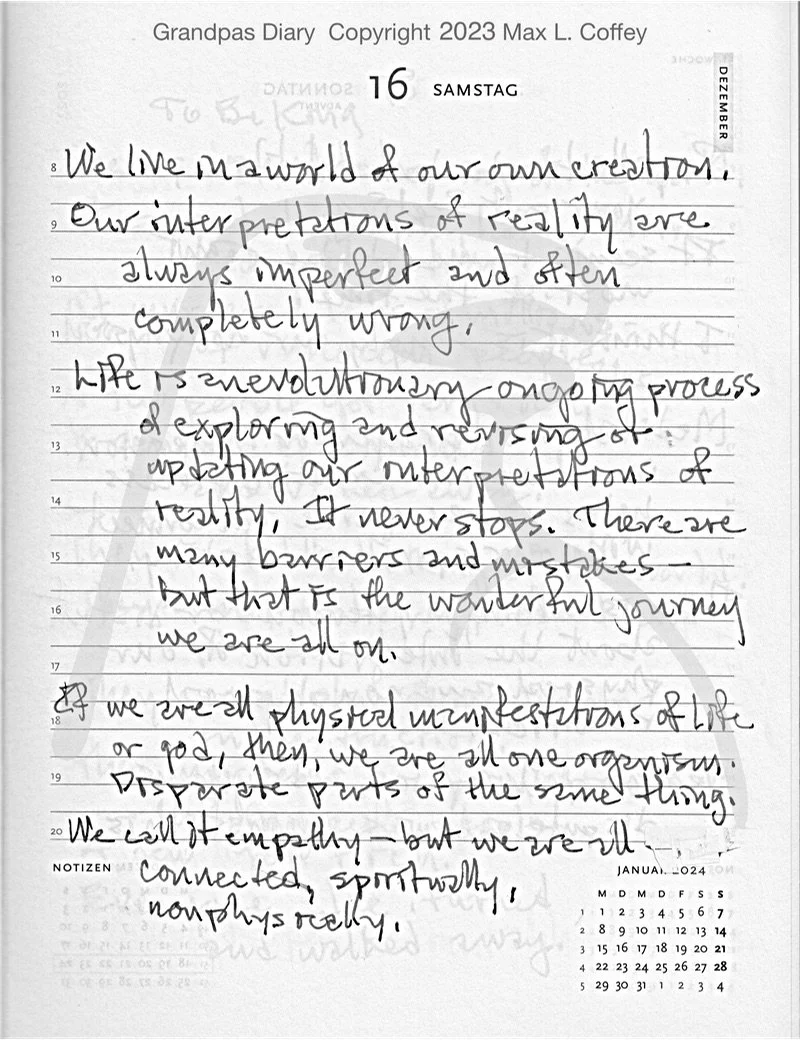 Grandpas Diary Copyright 2023 Max L. Coffey
16 SAMSTAG
DEZEMBER
8 We live in a world of our own creation.
9 Our interpretations of reality are
10 always imperfect and often
11 completely wrong.
12 Life is an evolutionary ongoing process
of exploring and revising or
13 updating our interpretations of
14 reality. It never stops. There are
15 many barriers and mistakes –
16 but that is the wonderful journey
we are all on.
17
18 If we are all physical manifestations of life
or god, then, we are all one organism.
19 Disparate parts of the same thing.
20 We call it empathy – but we are all
connected, spiritually,
nonphysically.
NOTIZEN
M D M D F S S
1 1 2 3 4 5 6 7
2 8 9 10 11 12 13 14
3 15 16 17 18 19 20 21
4 22 23 24 25 26 27 28
5 29 30 31 1 2 3 4